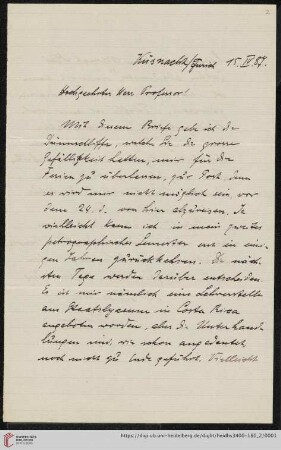 Küsnacht/Zürich 15. IV 87.
Hochgeehrter Herr Professor!
Mit diesem Briefe geht die
Dünnschliffe, welche Sie die grosse
Gefälligkeit hatten, mir für die
Ferien zu überlassen, zur Post, denn
es wird mir nicht möglich sein, vor
dem 24. d. von hier abzureisen. Ja
vielleicht kann ich in mein zweites
petrographisches Semester erst in eini-
gen Jahren zurückkehren. Die näch-
sten Tage werden darüber entscheiden.
Es ist mir nämlich eine Lehrerstelle
am Staatslyceum in Costa Rica
angeboten worden, aber die Unterhand-
lungen sind, wie schon angedeutet
noch nicht zu Ende geführt. Vielleicht
https://digi.ub.uni-heidelberg.de/diglit/heidhs3400-1B0_2/0001